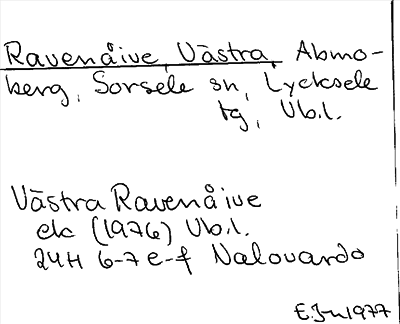 Ravenåive, Västra, Abmo-
berg, Sorsele sn, Lycksele
tg, Vb.l.
Västra Ravenåive
ek (1976) Vb.l.
24H 6-7 e-f Nalovardo
E.J-n 1977